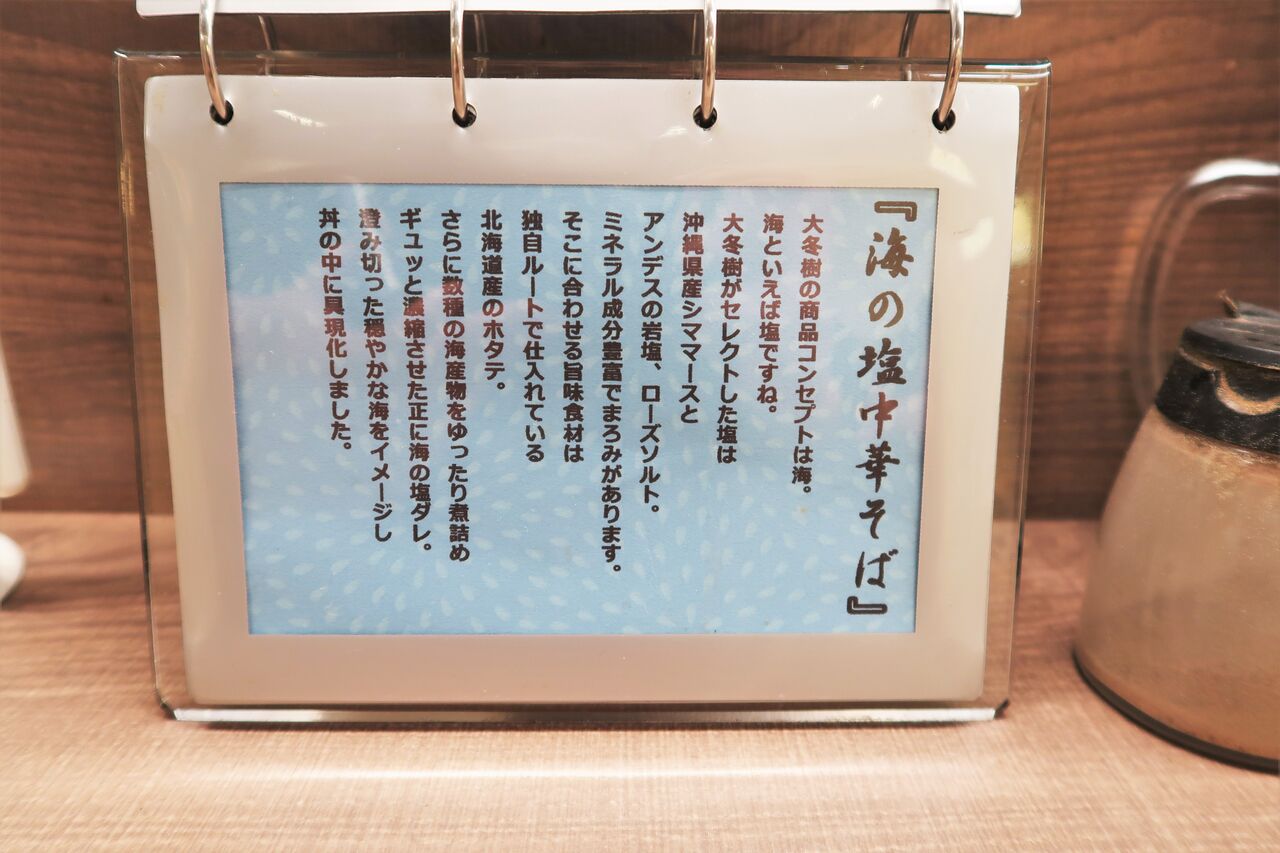 『海の塩中華そば』
大冬樹の商品コンセプトは海。
海といえば塩ですね。
大冬樹がセレクトした塩は
沖縄県産シママースと
アンデスの岩塩、ローズソルト。
ミネラル成分豊富でまろみがあります。
そこに合わせる旨味食材は
独自ルートで仕入れている
北海道産のホタテ。
さらに数種の海産物をゆったり煮詰め
ギュッと濃縮させた正に海の塩ダレ。
澄み切った穏やかな海をイメージし
丼の中に具現化しました。